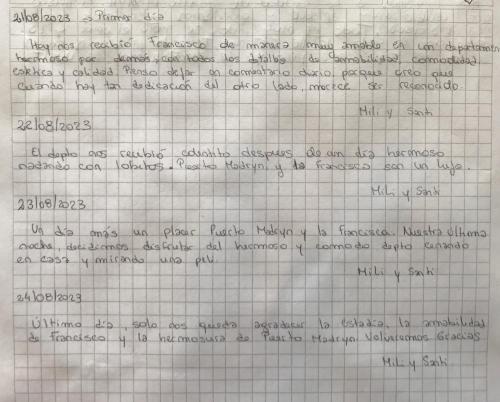 21/08/2023 → Primer día
Hoy nos recibió Francisco de manera muy amable en un departamen
hermoso por demás, con todos los detalles de amabilidad, comodidad,
estética y calidad. Pienso dejar un comentario diario, porque creo que
cuando hay tan dedicación del otro lado, merece ser reconocido.
Mili y Santi
22/08/2023
El depto nos recibió calentito despues de un día hermoso
nadando con lobitos. Puerto Madryn y la Francisca son un lujo.
Mili y Santi
23/08/2023
Un día más un placer Puerto Madryn y la Francisca. Nuestra última
noche, decidimos disfrutar del hermoso y comodo depto cenando
en casa y mirando una peli.
Mili y Santi
24/08/2023
Último día, solo nos queda agradecer la estadía, la amabilidad
de Francisco y la hermosura de Puerto Madryn. Volveremos. Gracias
Mili y Santi